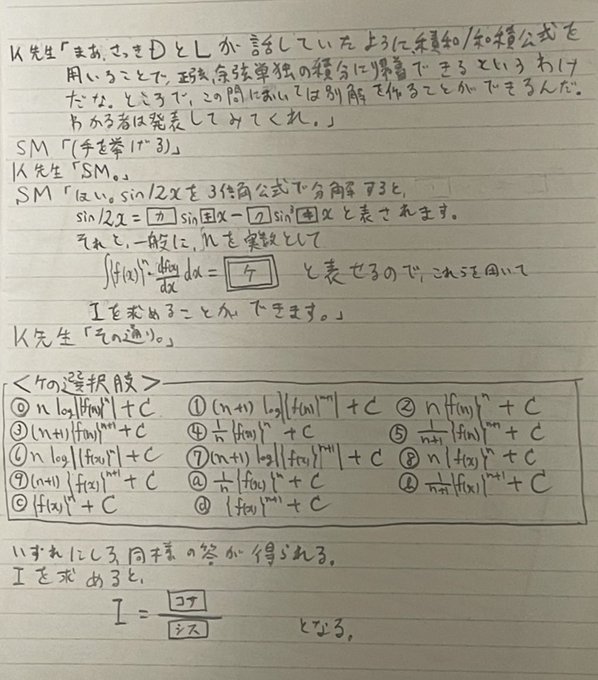 K先生「まあ、さっきDとLが話していたように、積和/和積公式を
用いることで、正弦、余弦単独の積分に帰着できるというわけ
だな。ところで、この問においては別解を作ることができるんだ。
わかる者は発表してみてくれ。」
SM「(手を挙げる)」
K先生「SM。」
SM「はい。sin12xを3倍角公式で分解すると、
sin12x=カsinキx-クsin³キxと表されます。
それと、一般に、nを実数として
∫{f(x)}ⁿ・df(x)/dx dx=ケ と表せるので、これらを用いて
Iを求めることができます。」
K先生「その通り。」
<ケの選択肢>
⓪ n log|{f(n)}ⁿ|+C ① (n+1) log|{f(n)}ⁿ⁺¹|+C ② n{f(n)}ⁿ+C
③ (n+1){f(n)}ⁿ⁺¹+C ④ 1/n{f(n)}ⁿ+C ⑤ 1/(n+1){f(n)}ⁿ⁺¹+C
⑥ n log|{f(x)}ⁿ|+C ⑦ (n+1) log|{f(x)}ⁿ⁺¹|+C ⑧ n{f(x)}ⁿ+C
⑨ (n+1){f(x)}ⁿ⁺¹+C ⓐ 1/n{f(x)}ⁿ+C ⓑ 1/(n+1){f(x)}ⁿ⁺¹+C
ⓒ {f(x)}ⁿ+C ⓓ {f(x)}ⁿ⁺¹+C
いずれにしろ、同様の答が得られる。
Iを求めると、
I=コサ/シス となる。